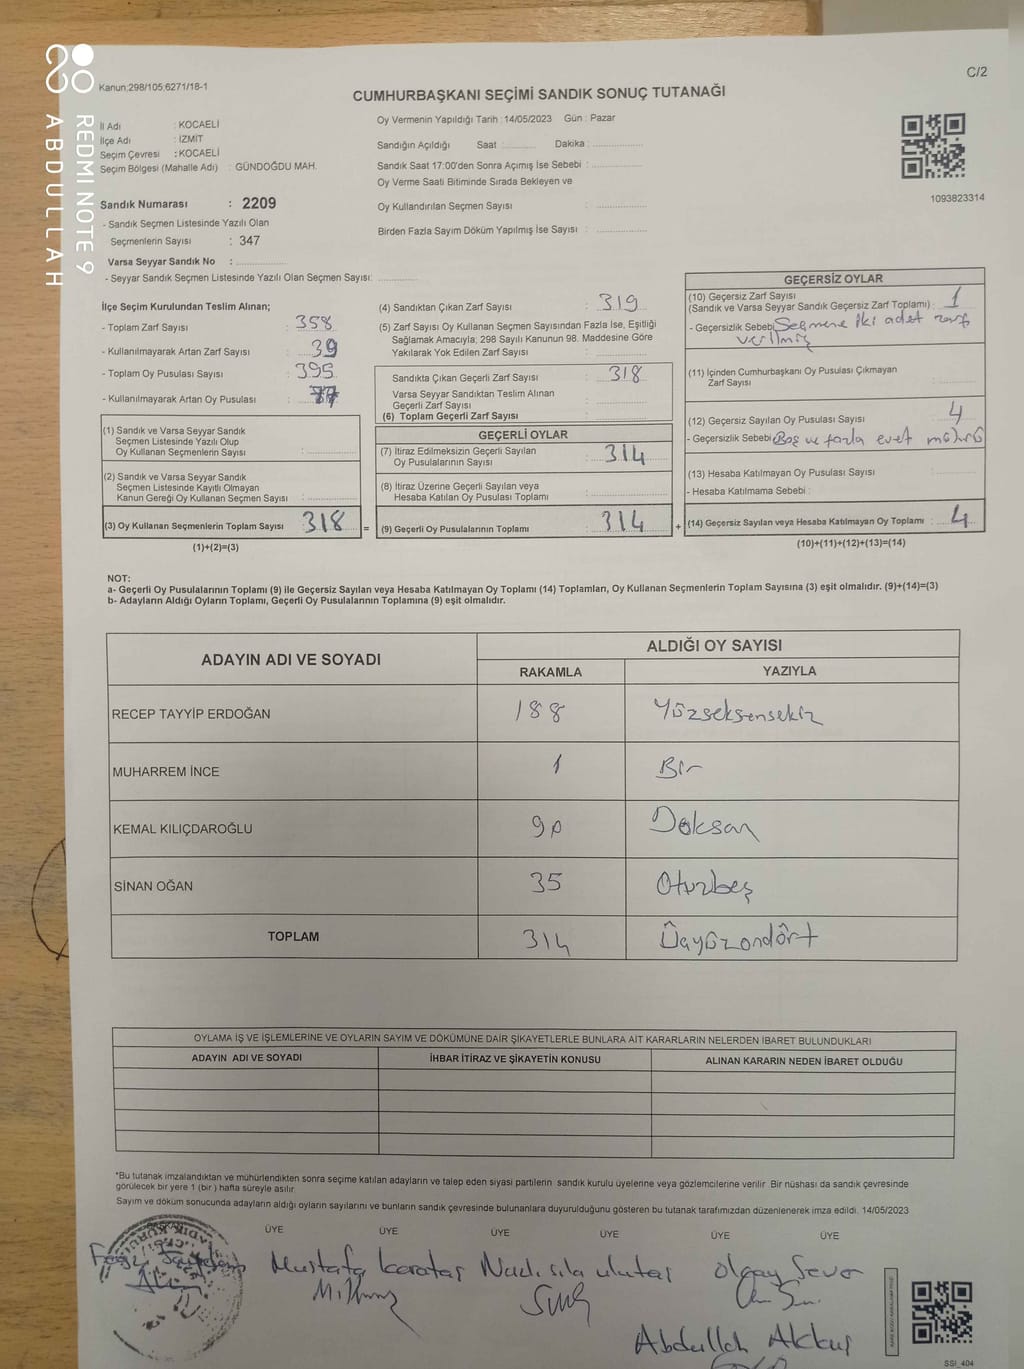 REDMI NOTE 9
ABDULLAH
C/2
Kanun;298/105;6271/18-1
CUMHURBAŞKANI SEÇİMİ SANDIK SONUÇ TUTANAĞI
İl Adı : KOCAELİ
İlçe Adı : İZMİT
Seçim Çevresi : KOCAELİ
Seçim Bölgesi (Mahalle Adı) : GÜNDOĞDU MAH.
Sandık Numarası : 2209
- Sandık Seçmen Listesinde Yazılı Olan
Seçmenlerin Sayısı : 347
Varsa Seyyar Sandık No :
- Seyyar Sandık Seçmen Listesinde Yazılı Olan Seçmen Sayısı:
Oy Vermenin Yapıldığı Tarih : 14/05/2023 Gün : Pazar
Sandığın Açıldığı Saat Dakika
Sandık Saat 17:00'den Sonra Açımış İse Sebebi :
Oy Verme Saati Bitiminde Sırada Bekleyen ve
Oy Kullandırılan Seçmen Sayısı :
Birden Fazla Sayım Döküm Yapılmış İse Sayısı :
1093823314
İlçe Seçim Kurulundan Teslim Alınan;
- Toplam Zarf Sayısı : 358
- Kullanılmayarak Artan Zarf Sayısı : 39
- Toplam Oy Pusulası Sayısı : 395
- Kullanılmayarak Artan Oy Pusulası : 77
(1) Sandık ve Varsa Seyyar Sandık
Seçmen Listesinde Yazılı Olup
Oy Kullanan Seçmenlerin Sayısı :
(2) Sandık ve Varsa Seyyar Sandık
Seçmen Listesinde Kayıtlı Olmayan
Kanun Gereği Oy Kullanan Seçmen Sayısı :
(3) Oy Kullanan Seçmenlerin Toplam Sayısı 318 =
(1)+(2)=(3)
(4) Sandıktan Çıkan Zarf Sayısı : 319
(5) Zarf Sayısı Oy Kullanan Seçmen Sayısından Fazla İse, Eşitliği
Sağlamak Amacıyla; 298 Sayılı Kanunun 98. Maddesine Göre
Yakılarak Yok Edilen Zarf Sayısı :
Sandıkta Çıkan Geçerli Zarf Sayısı : 318
Varsa Seyyar Sandıktan Teslim Alınan
Geçerli Zarf Sayısı :
(6) Toplam Geçerli Zarf Sayısı :
GEÇERLİ OYLAR
(7) İtiraz Edilmeksizin Geçerli Sayılan
Oy Pusulalarının Sayısı : 314
(8) İtiraz Üzerine Geçerli Sayılan veya
Hesaba Katılan Oy Pusulası Toplamı :
(9) Geçerli Oy Pusulalarının Toplamı : 314 +
GEÇERSİZ OYLAR
(10) Geçersiz Zarf Sayısı
(Sandık ve Varsa Seyyar Sandık Geçersiz Zarf Toplamı) : 1
- Geçersizlik Sebebi Seçmene iki adet zarf
verilmiş
(11) İçinden Cumhurbaşkanı Oy Pusulası Çıkmayan
Zarf Sayısı :
(12) Geçersiz Sayılan Oy Pusulası Sayısı : 4
- Geçersizlik Sebebi Boş ve fazla evet mührü
(13) Hesaba Katılmayan Oy Pusulası Sayısı :
- Hesaba Katılmama Sebebi :
(14) Geçersiz Sayılan veya Hesaba Katılmayan Oy Toplamı : 4
(10)+(11)+(12)+(13)=(14)
NOT:
a- Geçerli Oy Pusulalarının Toplamı (9) ile Geçersiz Sayılan veya Hesaba Katılmayan Oy Toplamı (14) Toplamları, Oy Kullanan Seçmenlerin Toplam Sayısına (3) eşit olmalıdır. (9)+(14)=(3)
b- Adayların Aldığı Oyların Toplamı, Geçerli Oy Pusulalarının Toplamına (9) eşit olmalıdır.
ADAYIN ADI VE SOYADI
ALDIĞI OY SAYISI
RAKAMLA YAZIYLA
RECEP TAYYİP ERDOĞAN 188 Yüzseksensekiz
MUHARREM İNCE 1 Bir
KEMAL KILIÇDAROĞLU 90 Doksan
SİNAN OĞAN 35 Otuzbeş
TOPLAM 314 Üçyüzondört
OYLAMA İŞ VE İŞLEMLERİNE VE OYLARIN SAYIM VE DÖKÜMÜNE DAİR ŞİKAYETLERLE BUNLARA AİT KARARLARIN NELERDEN İBARET BULUNDUKLARI
ADAYIN ADI VE SOYADI İHBAR İTİRAZ VE ŞİKAYETİN KONUSU ALINAN KARARIN NEDEN İBARET OLDUĞU
*Bu tutanak imzalandıktan ve mühürlendikten sonra seçime katılan adayların ve talep eden siyasi partilerin sandık kurulu üyelerine veya gözlemcilerine verilir. Bir nüshası da sandık çevresinde
görülecek bir yere 1 (bir) hafta süreyle asılır.
Sayım ve döküm sonucunda adayların aldığı oyların sayılarını ve bunların sandık çevresinde bulunanlara duyurulduğunu gösteren bu tutanak tarafımızdan düzenlenerek imza edildi. 14/05/2023
ÜYE ÜYE ÜYE ÜYE ÜYE ÜYE
Mustafa Karataş
Olgay Sever
Abdullah Akkuş
SSİ_404